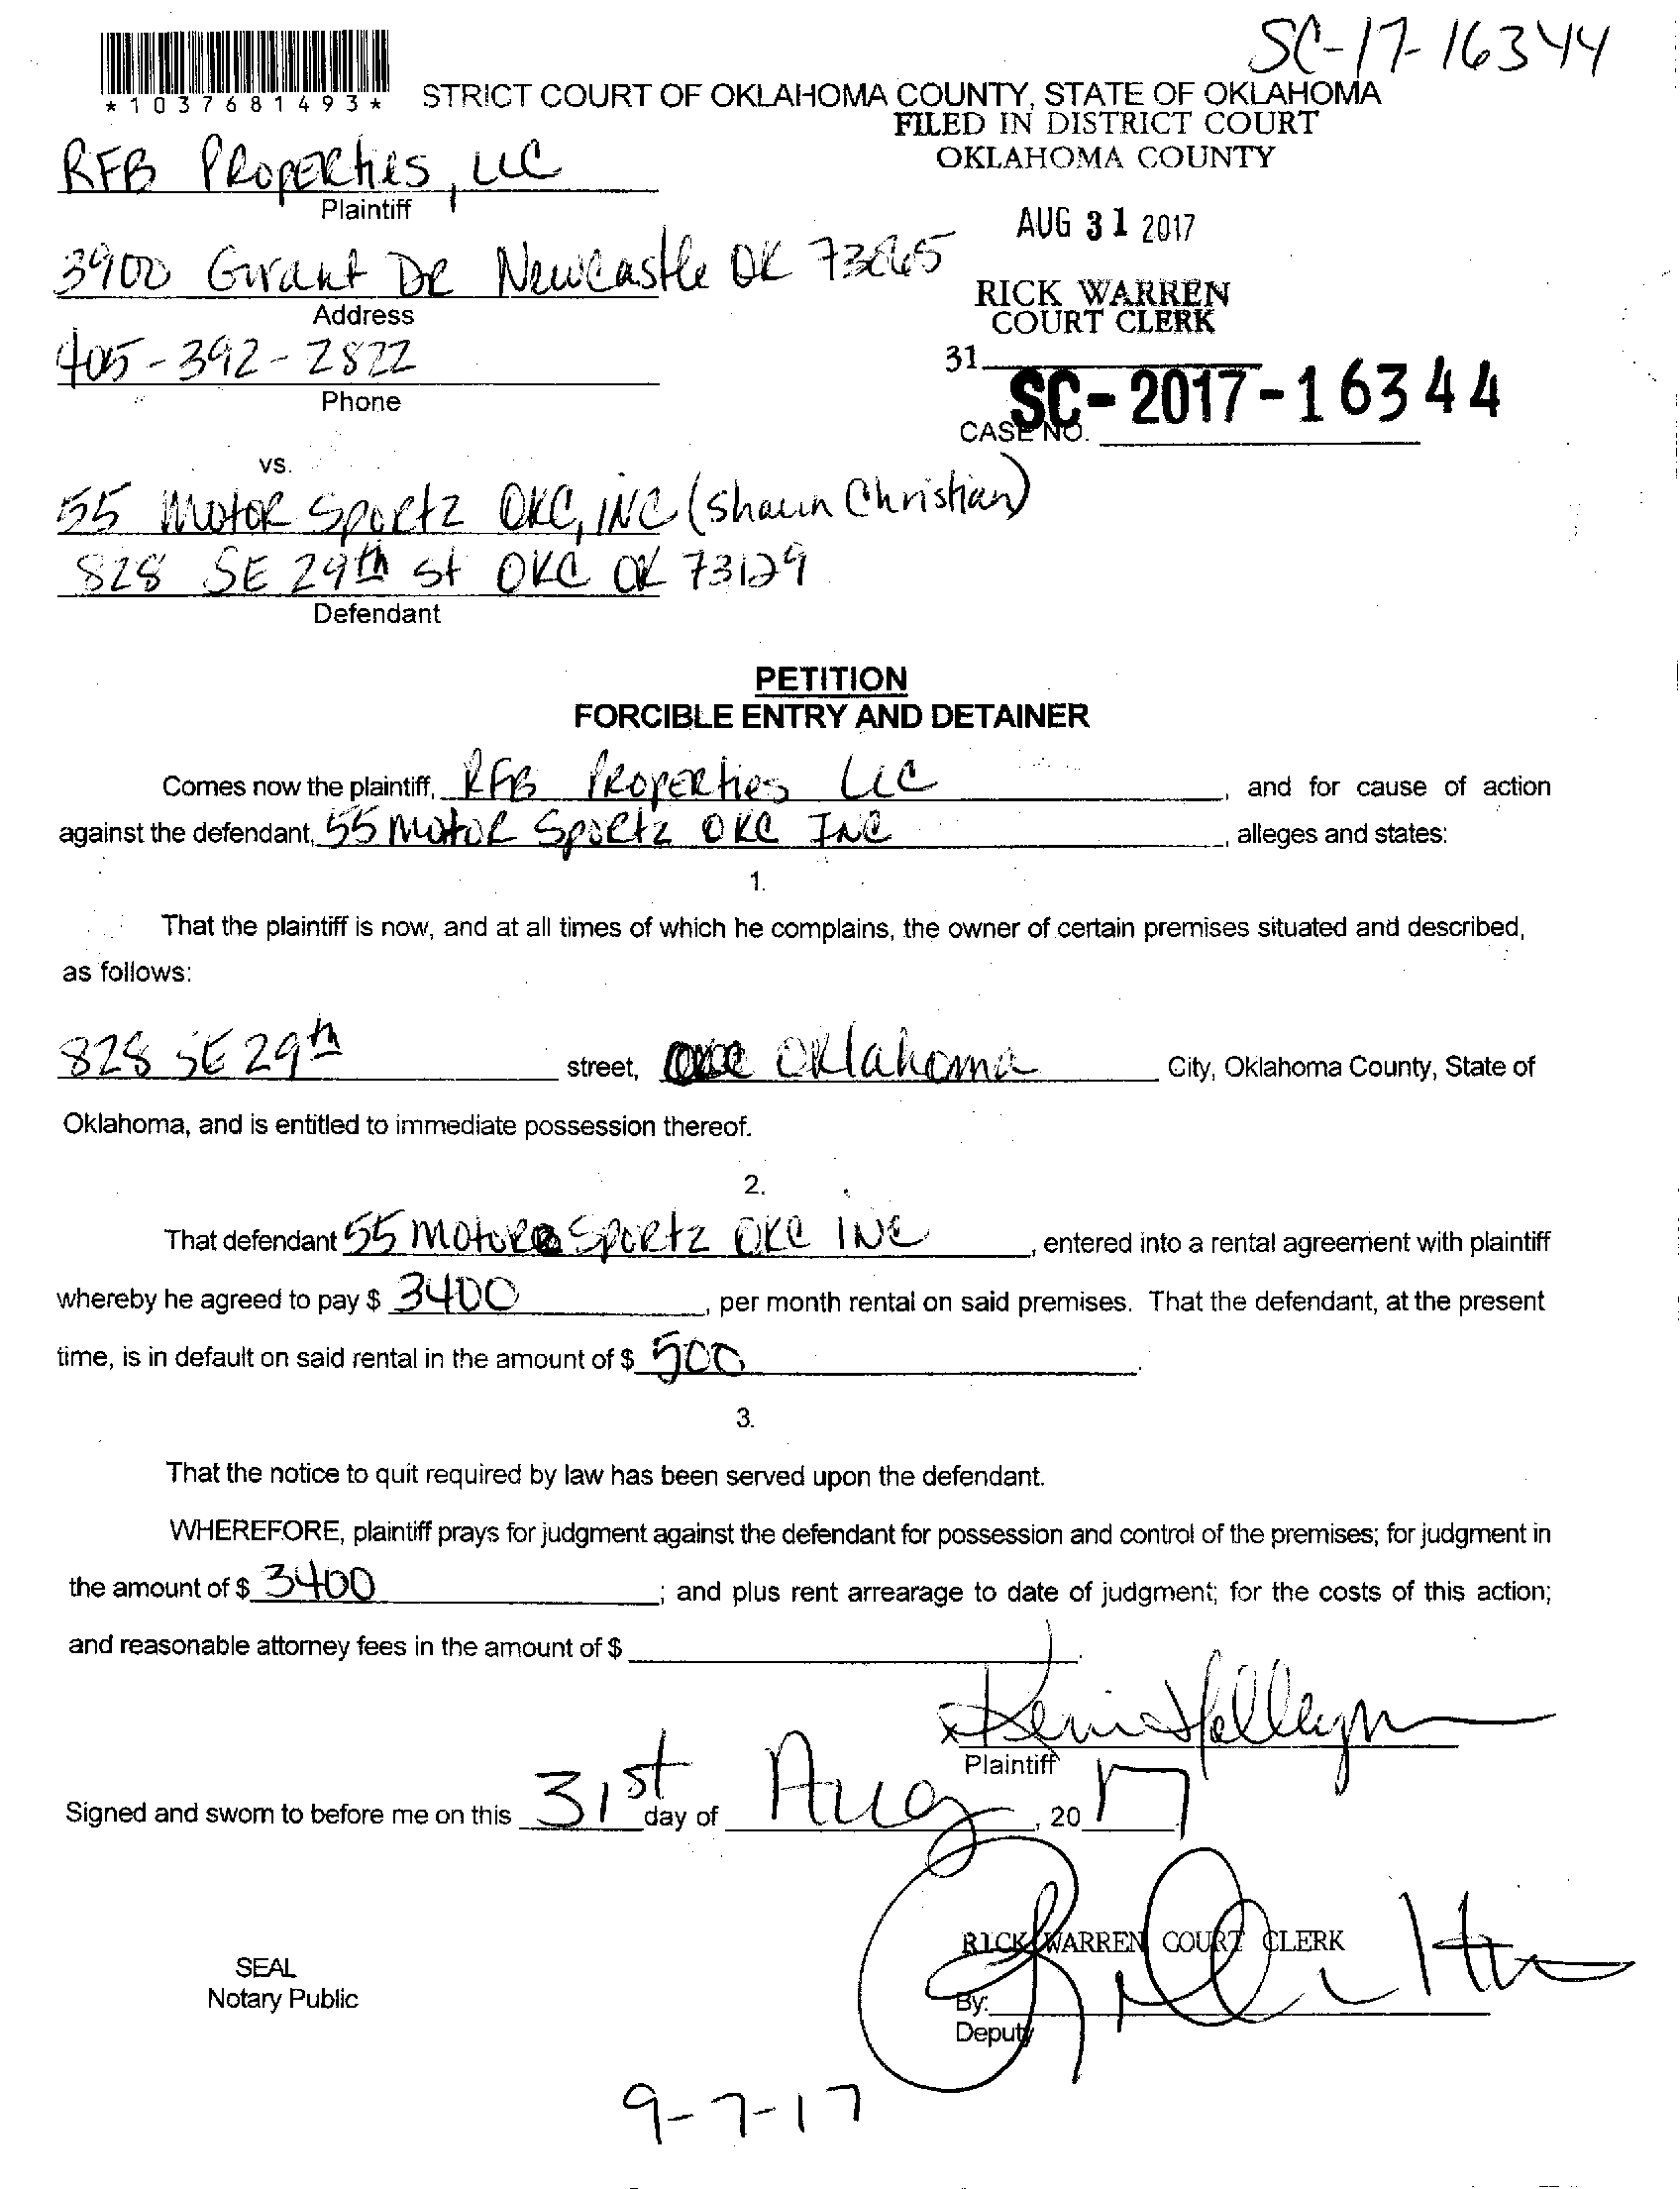 SC-17-16344
*1037681493*
STRICT COURT OF OKLAHOMA COUNTY, STATE OF OKLAHOMA
FILED IN DISTRICT COURT
OKLAHOMA COUNTY
RFB Properties, LLC
Plaintiff
AUG 31 2017
3900 Grant Dr Newcastle OK 73065
Address
RICK WARREN
COURT CLERK
405-392-2822
Phone
31
SC-2017-16344
CASE NO.
vs.
55 Motor Sportz OKC, INC (Shaun Christian)
828 SE 29th St OKC OK 73129
Defendant
PETITION
FORCIBLE ENTRY AND DETAINER
Comes now the plaintiff, RFB Properties LLC, and for cause of action
against the defendant, 55 Motor Sportz OKC INC, alleges and states:
1.
That the plaintiff is now, and at all times of which he complains, the owner of certain premises situated and described,
as follows:
828 SE 29th street, Oklahoma City, Oklahoma County, State of
Oklahoma, and is entitled to immediate possession thereof.
2.
That defendant 55 Motor Sportz OKC INC, entered into a rental agreement with plaintiff
whereby he agreed to pay $ 3400, per month rental on said premises. That the defendant, at the present
time, is in default on said rental in the amount of $ 500.
3.
That the notice to quit required by law has been served upon the defendant.
WHEREFORE, plaintiff prays for judgment against the defendant for possession and control of the premises; for judgment in
the amount of $ 3400; and plus rent arrearage to date of judgment; for the costs of this action;
and reasonable attorney fees in the amount of $
Plaintiff
Signed and sworn to before me on this 31st day of Aug, 2017
RICK WARREN COURT CLERK
SEAL
Notary Public
By:
Deputy
9-7-17